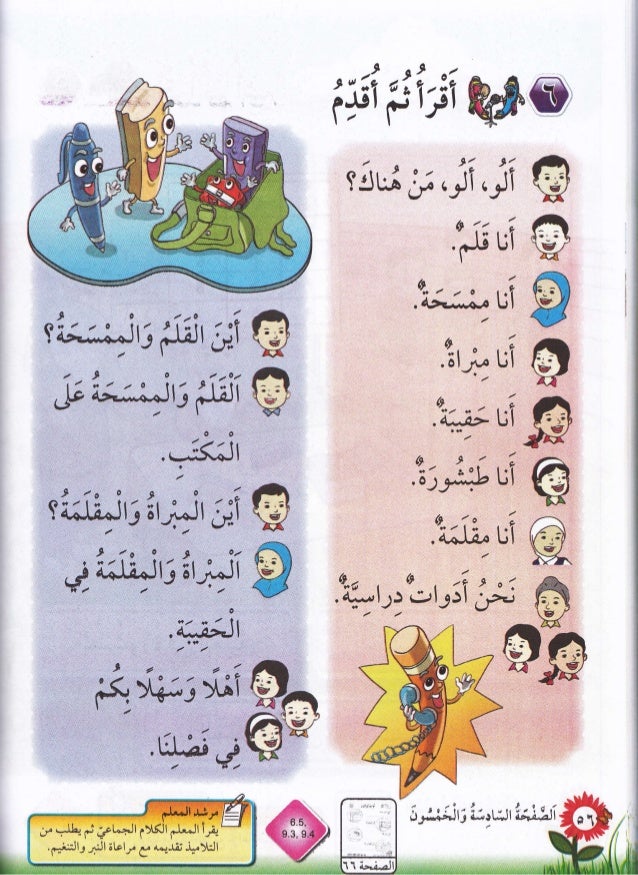 ٦
أَقْرَأُ ثُمَّ أُقَدِّمُ
أَلُو، أَلُو، مَنْ هُناكَ؟
أَنا قَلَمٌ.
أَنا مِمْسَحَةٌ.
أَنا مِبْراةٌ.
أَنا حَقِيبَةٌ.
أَنا طَبْشُورَةٌ.
أَنا مِقْلَمَةٌ.
نَحْنُ أَدَواتٌ دِراسِيَّةٌ.
أَيْنَ الْقَلَمُ وَالْمِمْسَحَةُ؟
اَلْقَلَمُ وَالْمِمْسَحَةُ عَلَى
الْمَكْتَبِ.
أَيْنَ الْمِبْراةُ وَالْمِقْلَمَةُ؟
اَلْمِبْراةُ وَالْمِقْلَمَةُ فِي
الْحَقِيبَةِ.
أَهْلًا وَسَهْلًا بِكُمْ
فِي فَصْلِنَا.
٥٦
اَلصَّفْحَةُ السَّادِسَةُ وَالْخَمْسُونَ
الصفحة ٦٦
6.5,
9.3, 9.4
مرشد المعلم
يقرأ المعلم الكلام الجماعيّ ثم يطلب من
التلاميذ تقديمه مع مراعاة النبر والتنغيم.